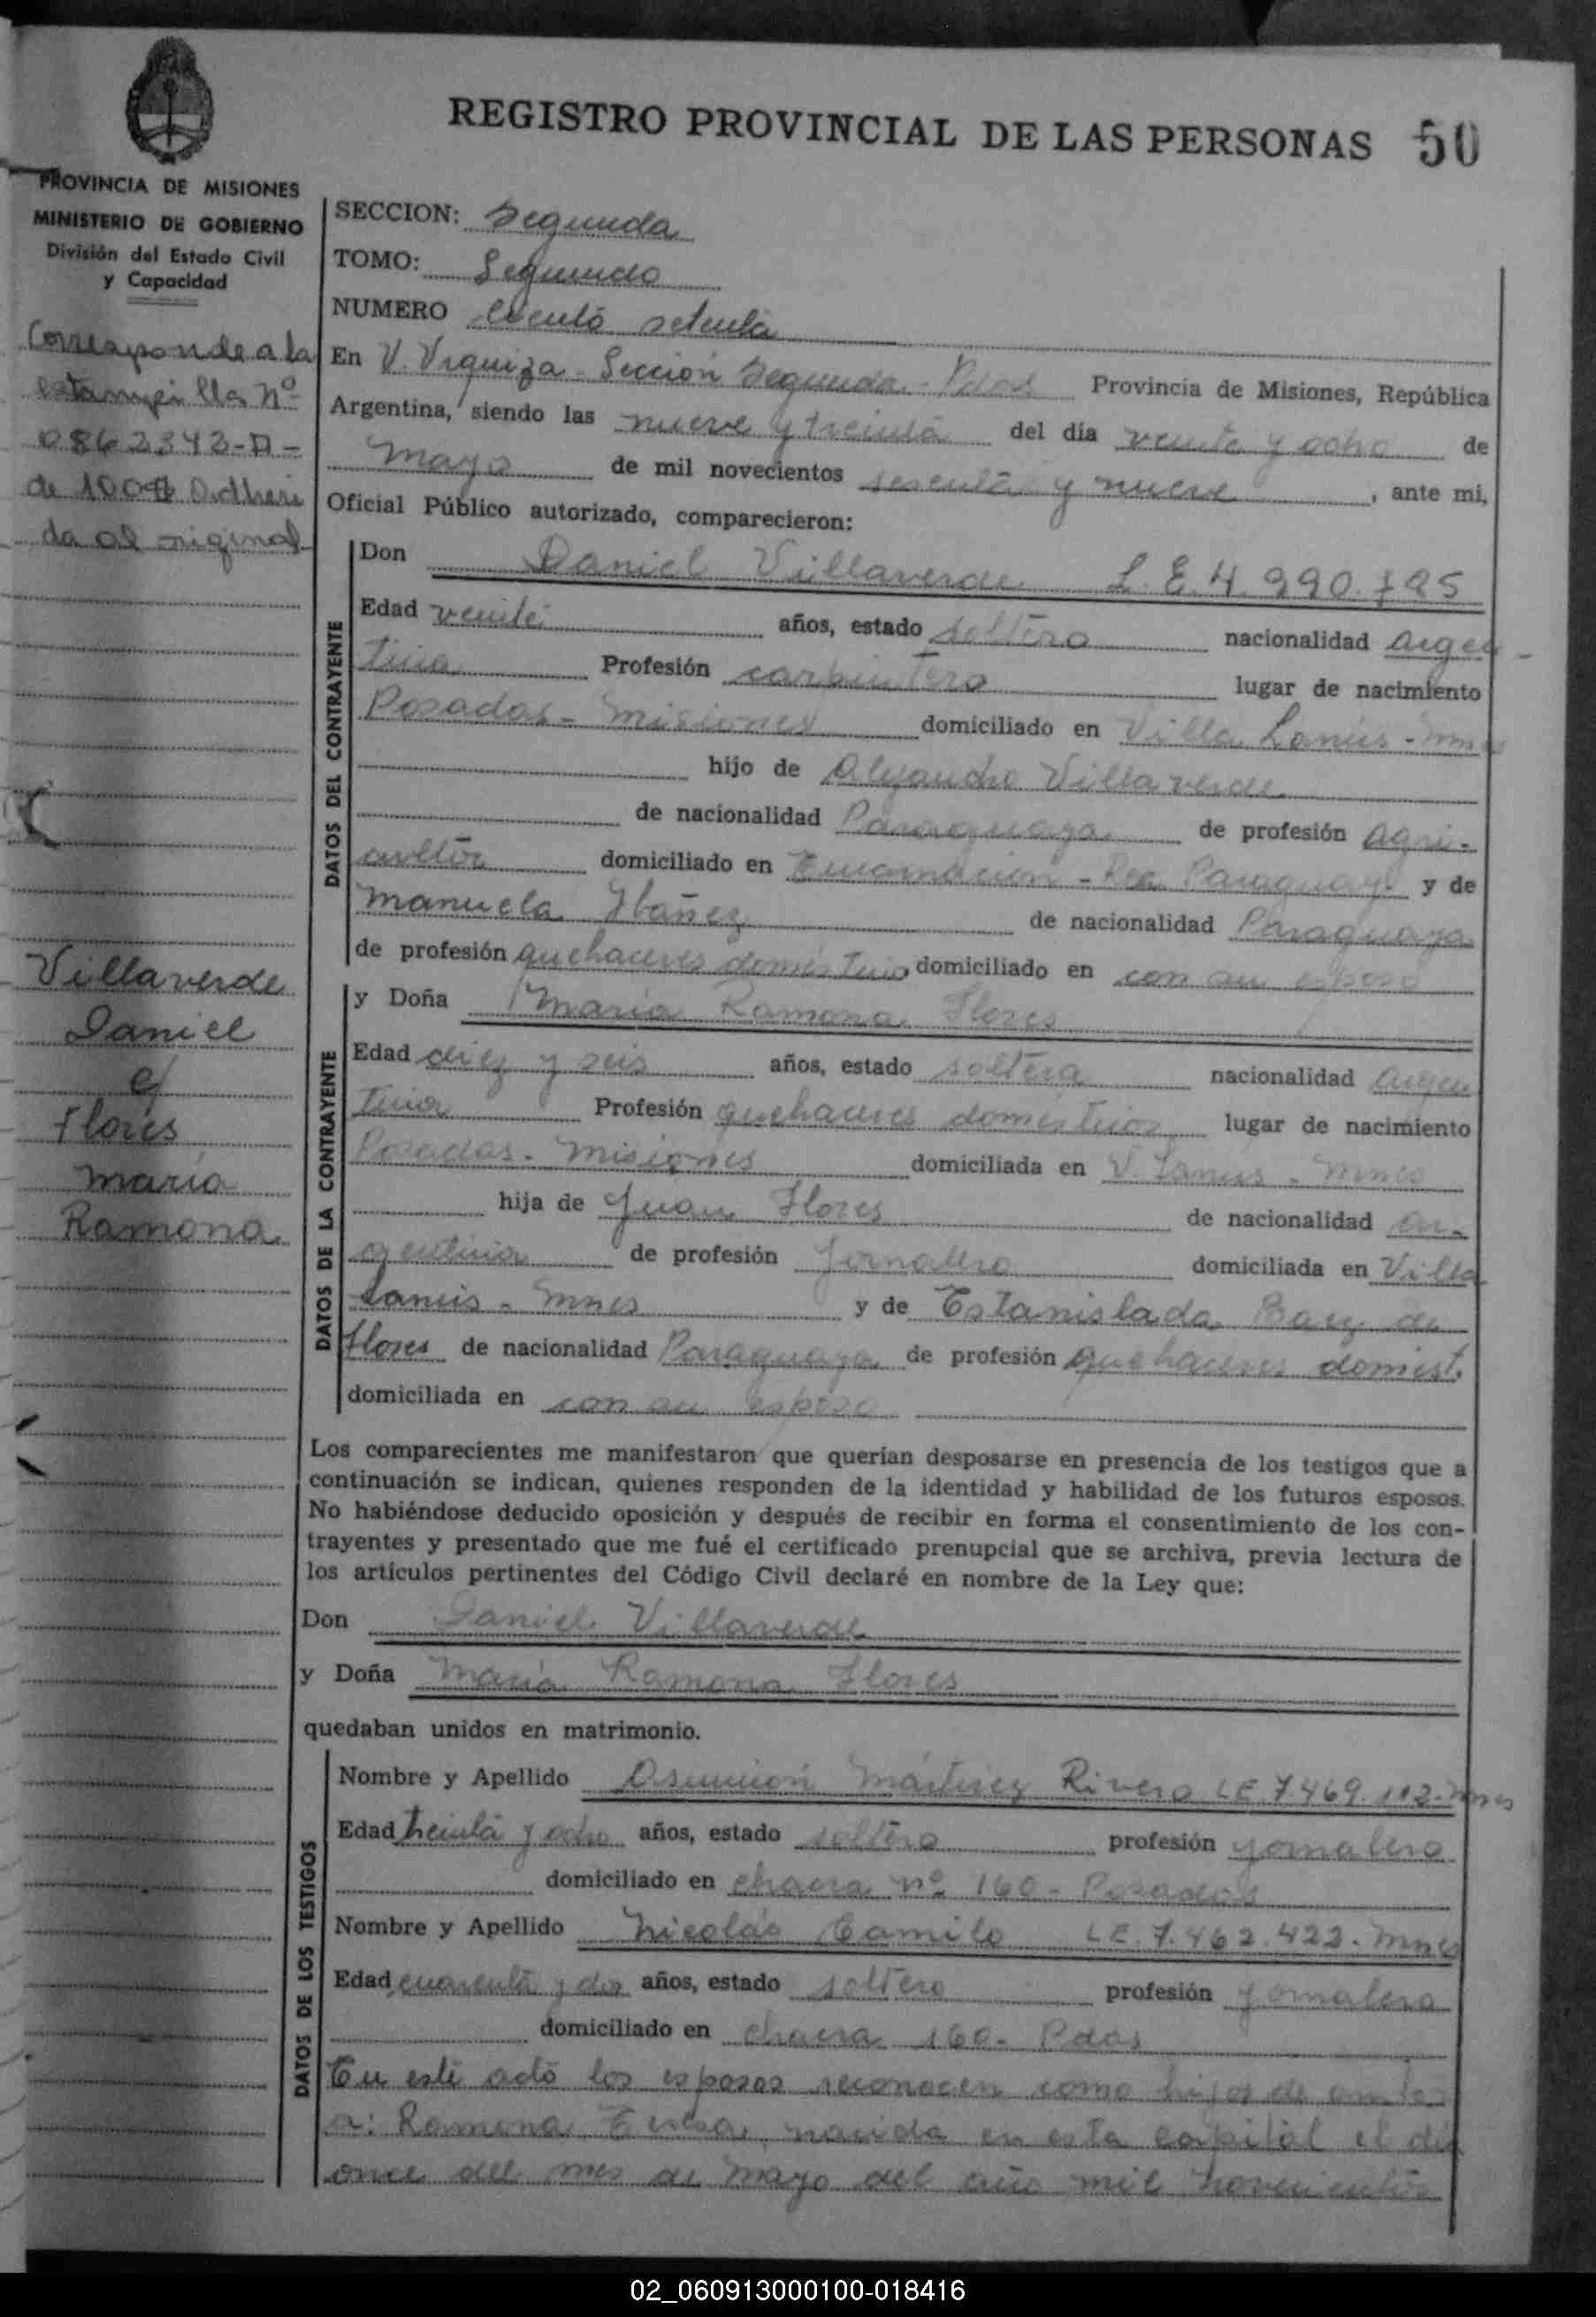 REGISTRO PROVINCIAL DE LAS PERSONAS 50
PROVINCIA DE MISIONES
MINISTERIO DE GOBIERNO
División del Estado Civil
y Capacidad
Corresponde a la
estampilla Nº
0862343-A-
de 100$ Adheri
da al original
Villaverde
Daniel
c/
Flores
María
Ramona
SECCION: Segunda
TOMO: Segundo
NUMERO Ciento setenta
En V. Urquiza - Sección Segunda - Pdas Provincia de Misiones, República
Argentina, siendo las nueve y treinta del día veinte y ocho de
mayo de mil novecientos sesenta y nueve, ante mi,
Oficial Público autorizado, comparecieron:
DATOS DEL CONTRAYENTE
Don Daniel Villaverde L.E. 4.990.785
Edad veinte años, estado soltero nacionalidad argen-
tina Profesión carpintero lugar de nacimiento
Posadas - Misiones domiciliado en Villa Lanús - Mnes
hijo de Alejandro Villaverde
de nacionalidad Paraguaya de profesión Agri-
cultor domiciliado en Encarnación - Rca Paraguay y de
Manuela Ibañez de nacionalidad Paraguaya
de profesión quehaceres domésticos domiciliado en con su esposo
DATOS DE LA CONTRAYENTE
y Doña María Ramona Flores
Edad diez y seis años, estado soltera nacionalidad argen
tina Profesión quehaceres domésticos lugar de nacimiento
Posadas - Misiones domiciliada en V. Lanus - Mnes
hija de Juan Flores de nacionalidad ar-
gentina de profesión Jornalero domiciliada en Villa
Lanús - Mnes y de Estanislada de
Flores de nacionalidad Paraguaya de profesión quehaceres domést.
domiciliada en con su esposo
Los comparecientes me manifestaron que querían desposarse en presencia de los testigos que a
continuación se indican, quienes responden de la identidad y habilidad de los futuros esposos.
No habiéndose deducido oposición y después de recibir en forma el consentimiento de los con-
trayentes y presentado que me fué el certificado prenupcial que se archiva, previa lectura de
los artículos pertinentes del Código Civil declaré en nombre de la Ley que:
Don Daniel Villaverde
y Doña María Ramona Flores
quedaban unidos en matrimonio.
DATOS DE LOS TESTIGOS
Nombre y Apellido Asunción Mártirez Rivero LE 7.469.112-Mnes
Edad treinta y ocho años, estado soltero profesión jornalero
domiciliado en chacra nº 160 - Posadas
Nombre y Apellido Nicolás Camilo LE. 7.462.422. Mnes
Edad cuarenta y dos años, estado soltero profesión jornalero
domiciliado en chacra 160 - Pdas
En este acto los esposos reconocen como hijos de ambos
a: Ramona nacida en esta capital el día
once del mes de mayo del año mil novecientos
02_060913000100-018416